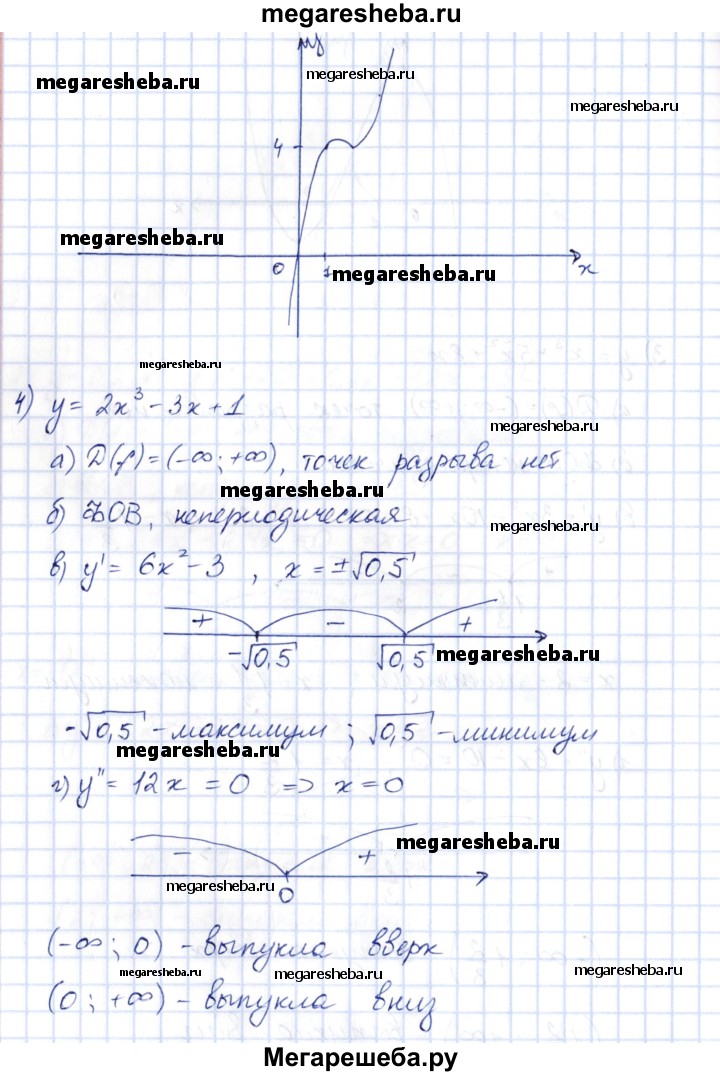 megaresheba.ru
y
megaresheba.ru
megaresheba.ru
megaresheba.ru
4
megaresheba.ru
0
1
megaresheba.ru
x
megaresheba.ru
4) y = 2x³ - 3x + 1
megaresheba.ru
а) D(f) = (-∞; +∞), точек разрыва нет
megaresheba.ru
б) ФОВ, непериодическая
megaresheba.ru
в) y' = 6x² - 3 , x = ±√0,5
+ - +
-√0,5 √0,5
megaresheba.ru
-√0,5 - максимум ; √0,5 - минимум
megaresheba.ru
г) y'' = 12x = 0 => x = 0
- +
megaresheba.ru
megaresheba.ru
0
(-∞; 0) - выпукла вверх
megaresheba.ru
megaresheba.ru
megaresheba.ru
(0; +∞) - выпукла вниз
Мегарешеба.ру